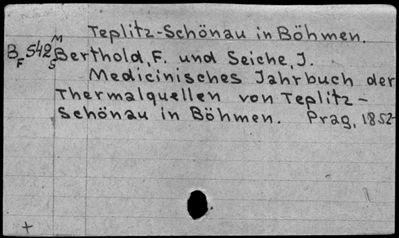 Teplitz-Schönau in Böhmen.
B F 542 M S
Berthold, F. und Seiche, J.
Medicinisches Jahrbuch der
Thermalquellen von Teplitz-
Schönau in Böhmen. Prag, 1852-
+